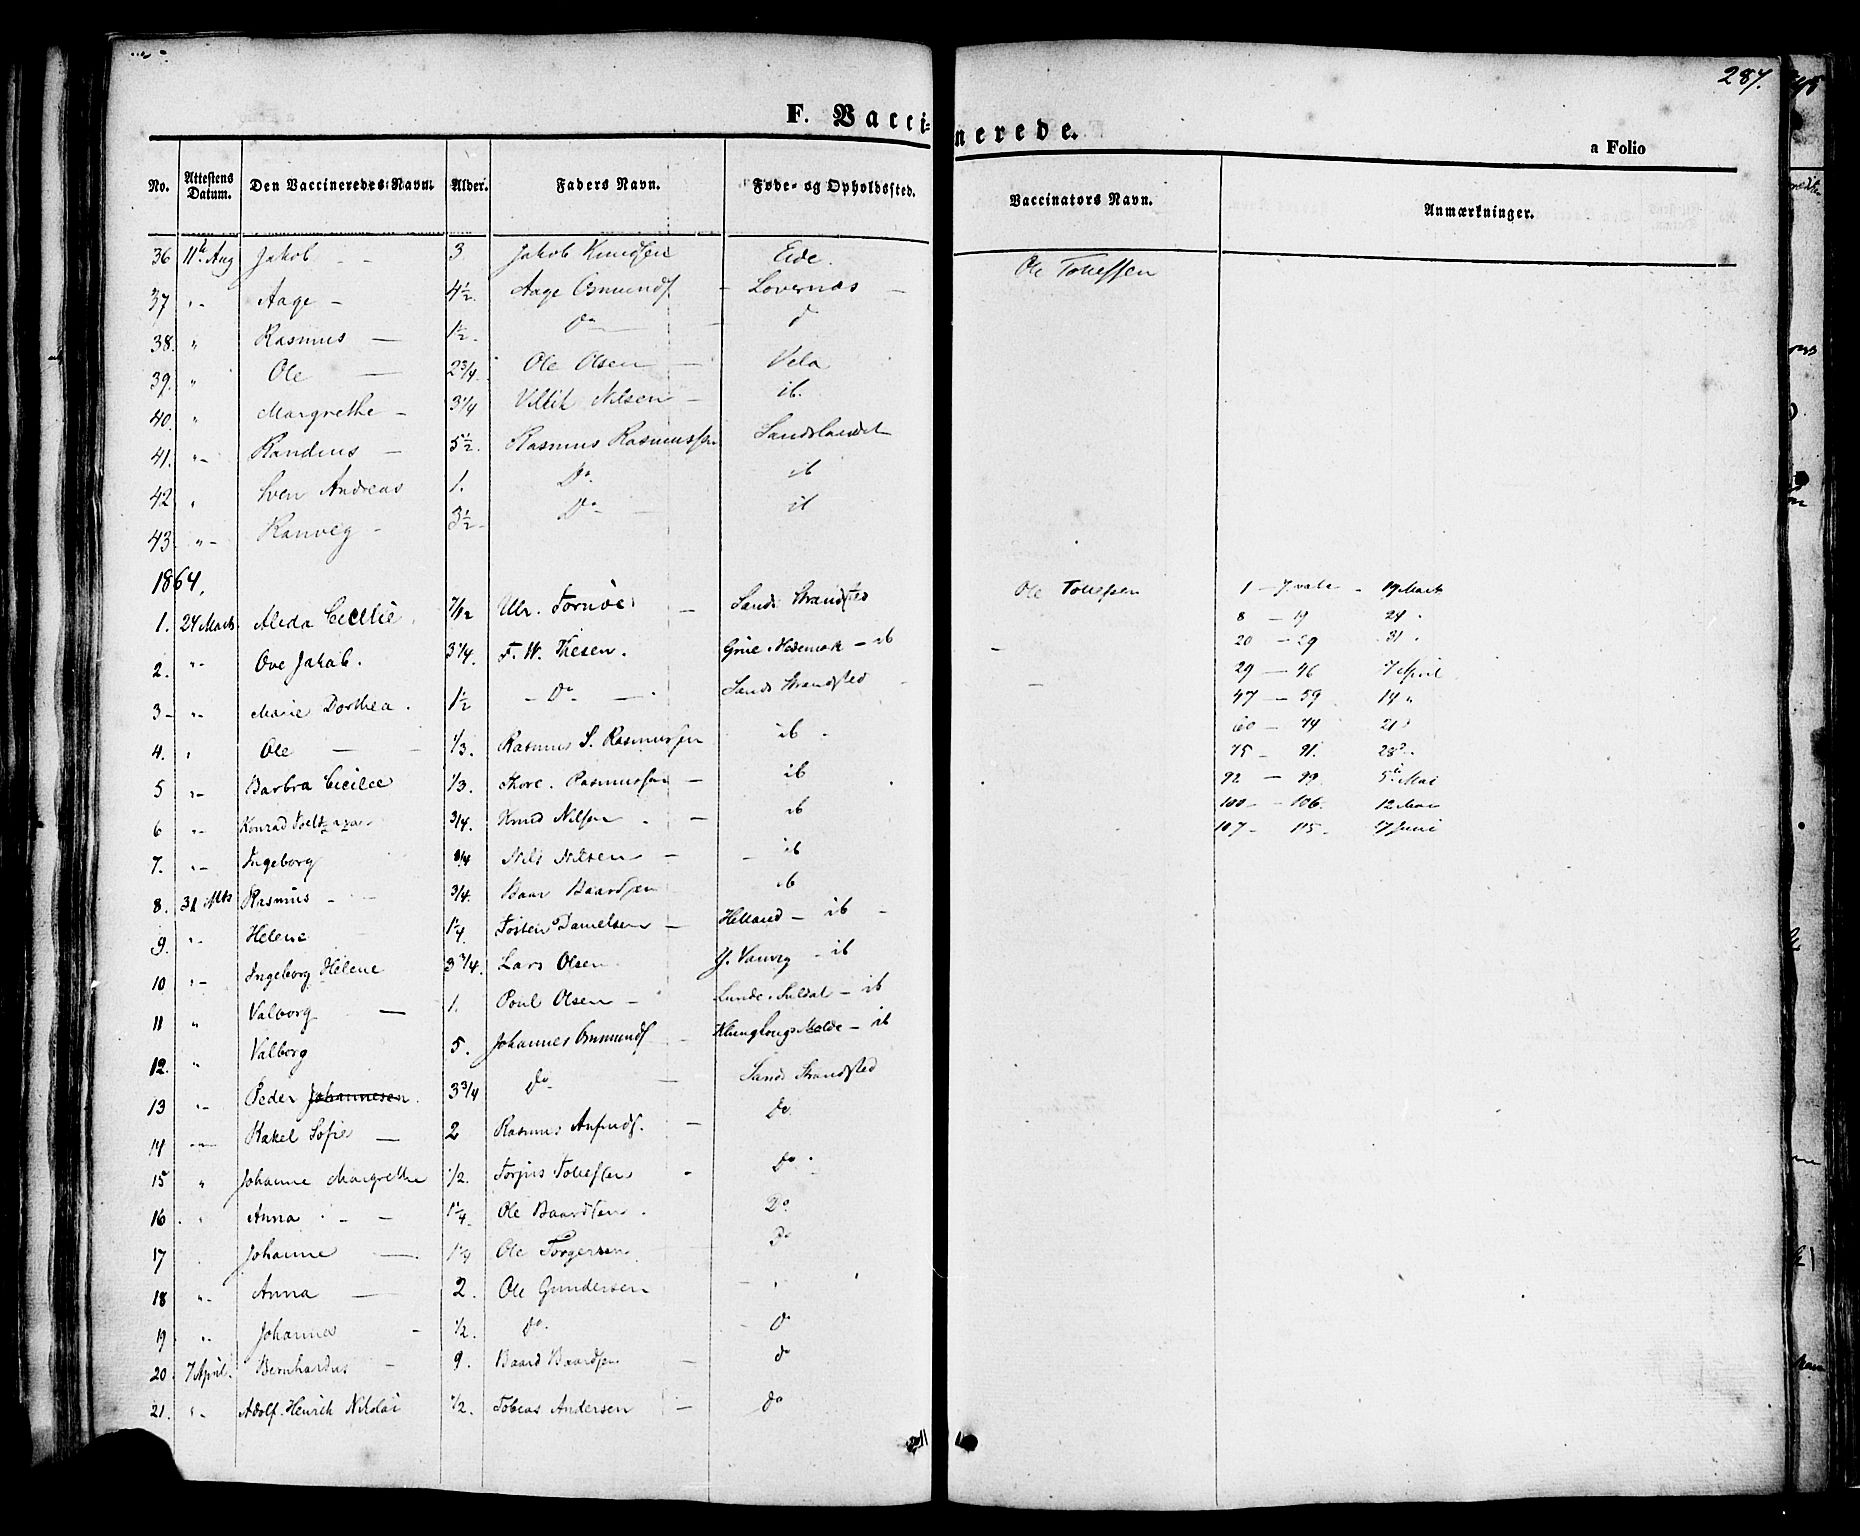 287.
F. Vaccinerede.
a Folio
No. Attestens Datum. Den Vaccineredes Navn. Alder. Faders Navn. Føde- og Opholdssted. Vaccinators Navn. Anmærkninger.
36 11te Aug Jakob - - 3 Jakob Knudsen Eide. Ole Tollefsen
37 "- Aage - 4½. Aage Osmunds. - Lovernæs -
38. " Rasmus - 1½. Do - d
39. " Ole - 2¾. Ole Olsen - Vela
40. " Margrethe - 3¼ Villik Nilsen - ib.
41. "- Randeus - 5½. Rasmus Rasmussen Sandslandet
42. " Sven Andreas 1. Do. ib
43. "- Ranveg - 3½. Do - ib
1864.
1. 24 Marts Alida Cecilie. 7/12 Ulr. Tornöe - Sands Strandsted Ole Tollefsen 1 - 7 19 Marts
2. "- Ove Jakob. 3¼. F. W. Thesen. Grue Hedemark - ib 8 - 19 24 "
3 - "- Marie Dorthea. 1½ - Do - Sands Strandsted 20 - 29 31 "
4. " Ole - 1/3. Rasmus S. Rasmussen ib 29 - 46 7 April
5 "- Barbra Cecilie 1/3. Thore. Rasmussen - ib 47 - 59 14 "
6 "- Konrad 3/4. Knud Nilsen - ib 60 - 74 21
7. "- Ingeborg 3/4 Nils Nilsen - ib 75 - 91. 28
8. 31 Mts Rasmus - 3/4. Baar Baardsen ib 92 - 99. 5te Mai
9. "- Helene 1¼. Tosten Danielsen - Helland - ib - 100 - 106. 12 Mai
10 "- Ingeborg Helene 3¾. Lars Olsen Y. Vanvig - ib 107 - 115. 17 Juni
11 " Valborg - 1. Poul Olsen - Lunde Suldal - ib
12. " Valborg 5. Johannes Osmunds - ib
13 "- Peder Johannesen. 3¾ Do - Sands Strandsted
14 "- Rakel Sofie - 2 Rasmus Anfinds. - Do.
15 " Johanne Margrethe 1/2. Torjus Tollefsen Do
16. " Anna - - 1¼. Ole Baardsen. Do
17 Johanne - 1¼ Ole Torgersen Do
18 "- Anna - 2. Ole Gundersen - "
19 " Johanna - 1/2. Do. - D
20 7 April. Bernhardus - 9. Baard Baardsen - d
21. "- Adolf Henrik Nikolai 1/2. Tobias Andersen - do